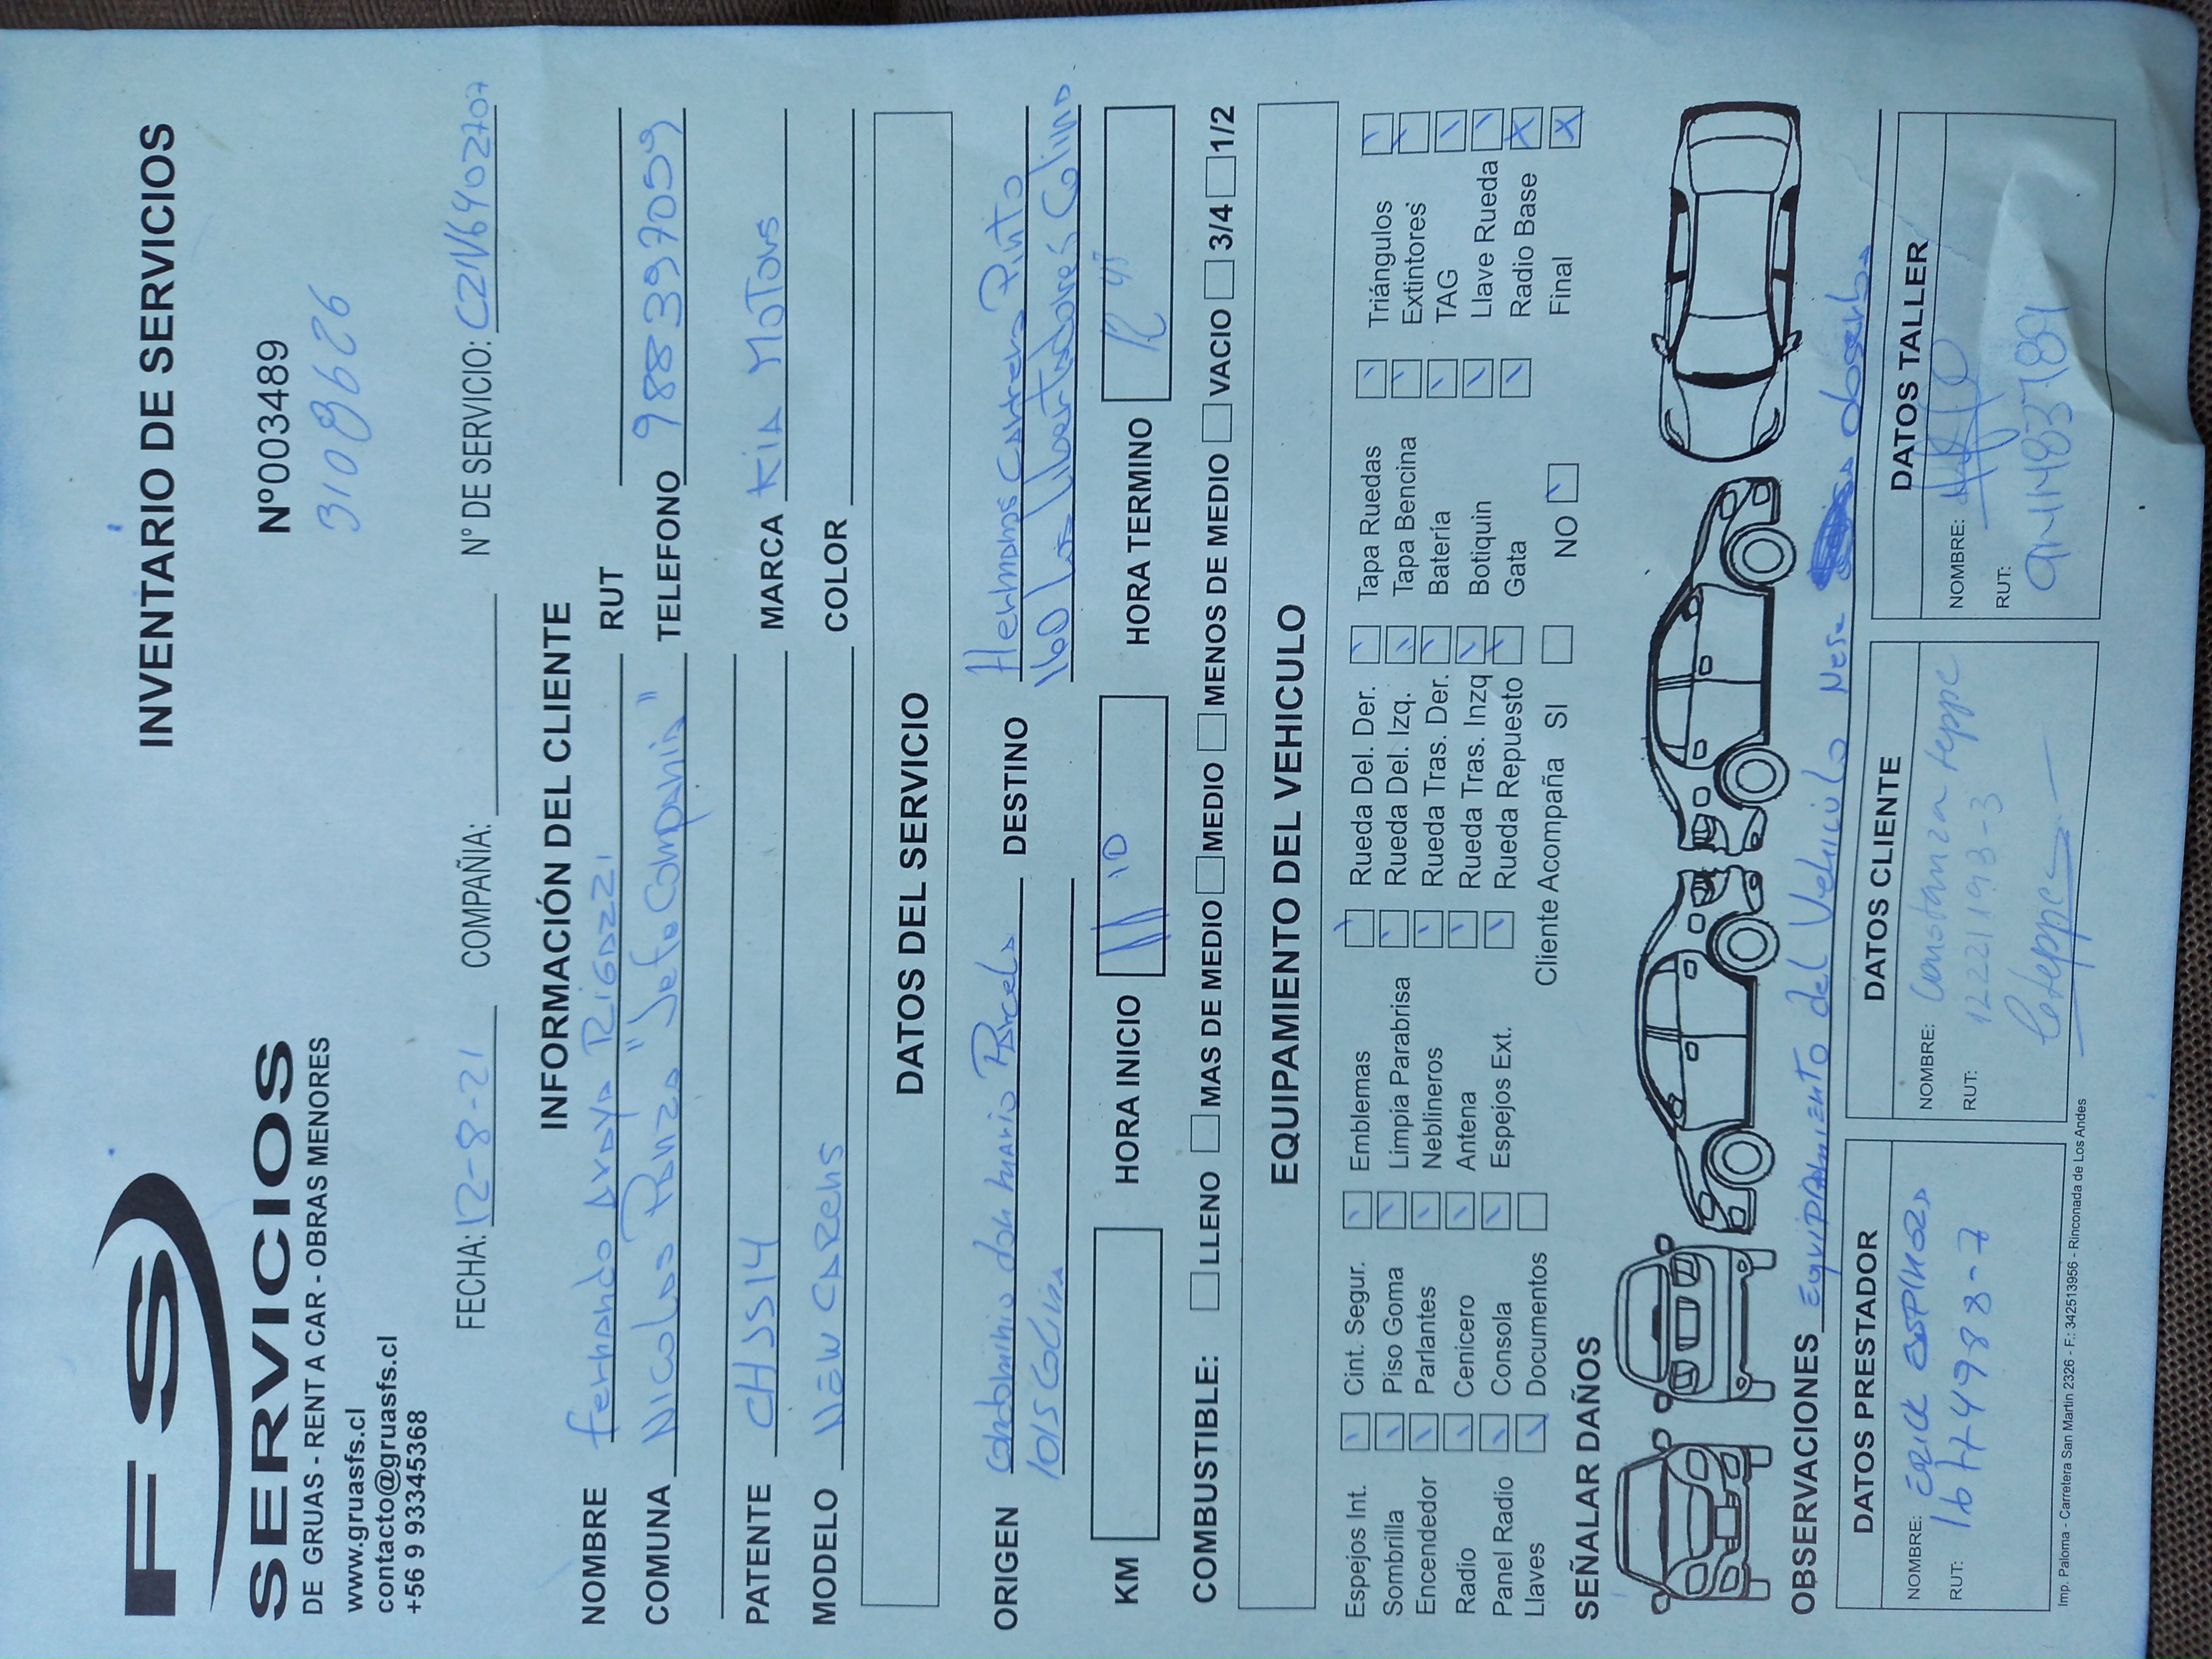 FS
SERVICIOS
DE GRUAS - RENT A CAR - OBRAS MENORES
www.gruasfs.cl
contacto@gruasfs.cl
+56 9 93345368
INVENTARIO DE SERVICIOS
Nº003489
3108626
FECHA: 12-8-21 COMPAÑIA: N° DE SERVICIO: CZ1V6402707
INFORMACIÓN DEL CLIENTE
NOMBRE Fernando Araya Rigazzi RUT
COMUNA Nicolas "Jefe Compañia" TELEFONO 988397059
PATENTE CHJS14 MARCA KIA MOTORS
MODELO NEW CARENS COLOR
DATOS DEL SERVICIO
ORIGEN Condominio don mario Parcela DESTINO Hermanos Carrera Pinto
1015 Colina 160 Los Libertadores Colina
KM HORA INICIO 11 10 HORA TERMINO 12
COMBUSTIBLE: LLENO MAS DE MEDIO MEDIO MENOS DE MEDIO VACIO 3/4 1/2
EQUIPAMIENTO DEL VEHICULO
Espejos Int. Cint. Segur. Emblemas Rueda Del. Der. Tapa Ruedas Triángulos
Sombrilla Piso Goma Limpia Parabrisa Rueda Del. Izq. Tapa Bencina Extintores
Encendedor Parlantes Neblineros Rueda Tras. Der. Batería TAG
Radio Cenicero Antena Rueda Tras. Inzq Botiquin Llave Rueda
Panel Radio Consola Espejos Ext. Rueda Repuesto Gata Radio Base
Llaves Documentos Cliente Acompaña SI NO Final
SEÑALAR DAÑOS
OBSERVACIONES Equipamiento del Vehiculo
DATOS PRESTADOR
NOMBRE: ERICK ESPINOZA
RUT: 16774988-7
DATOS CLIENTE
NOMBRE: Constanza teppe
RUT: 12221193-3
DATOS TALLER
NOMBRE:
RUT:
Imp. Paloma - Carretera San Martín 2326 - F.: 342513956 - Rinconada de Los Andes